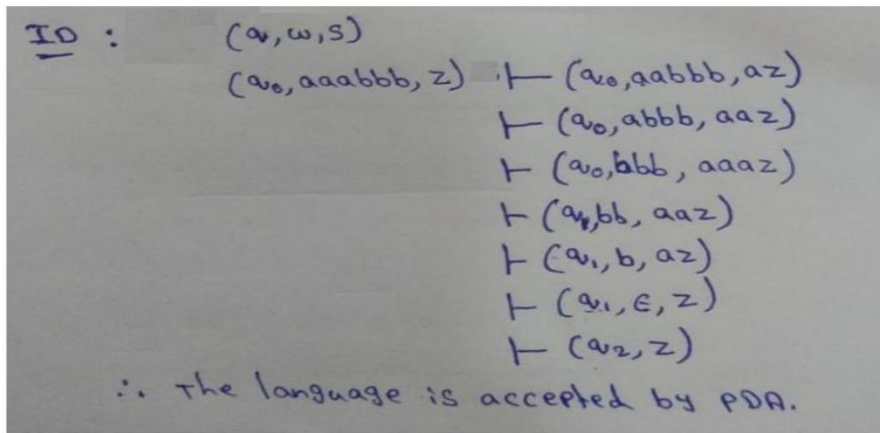 ID : (q, w, s)
(q0, aaabbb, z) ⊢ (q0, aabbb, az)
⊢ (q0, abbb, aaz)
⊢ (q0, bbb, aaaz)
⊢ (q1, bb, aaz)
⊢ (q1, b, az)
⊢ (q1, ∈, z)
⊢ (q2, z)
∴ The language is accepted by PDA.